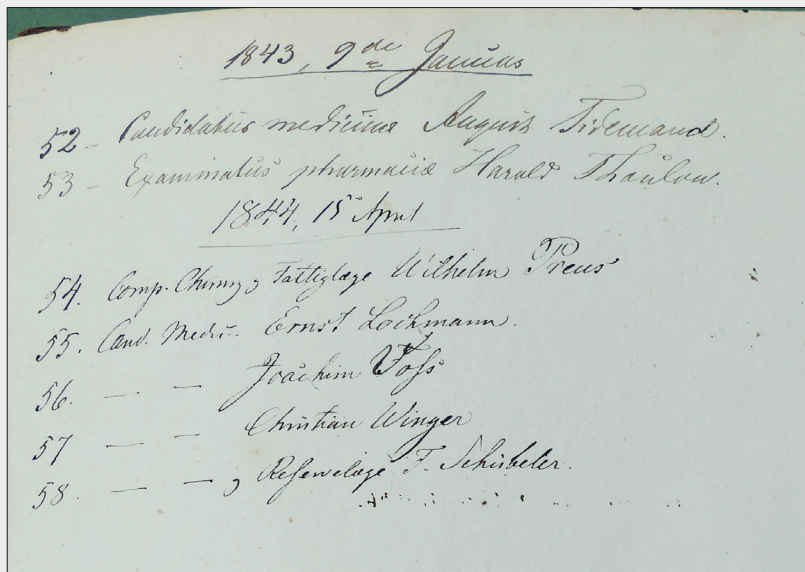 1843, 9de Januar
52 - Candidatus medicinæ August Tidemand.
53 - Examinatus pharmaciæ Harald Thaulow.
1844, 15 April
54. Comp. Chirurg, Fattiglæge Wilhelm Preus
55. Cand. Medic. Ernst Lochmann.
56. — — Joachim Voss
57 — — Christian Winger
58. — —, Reservelæge F. Schübeler.